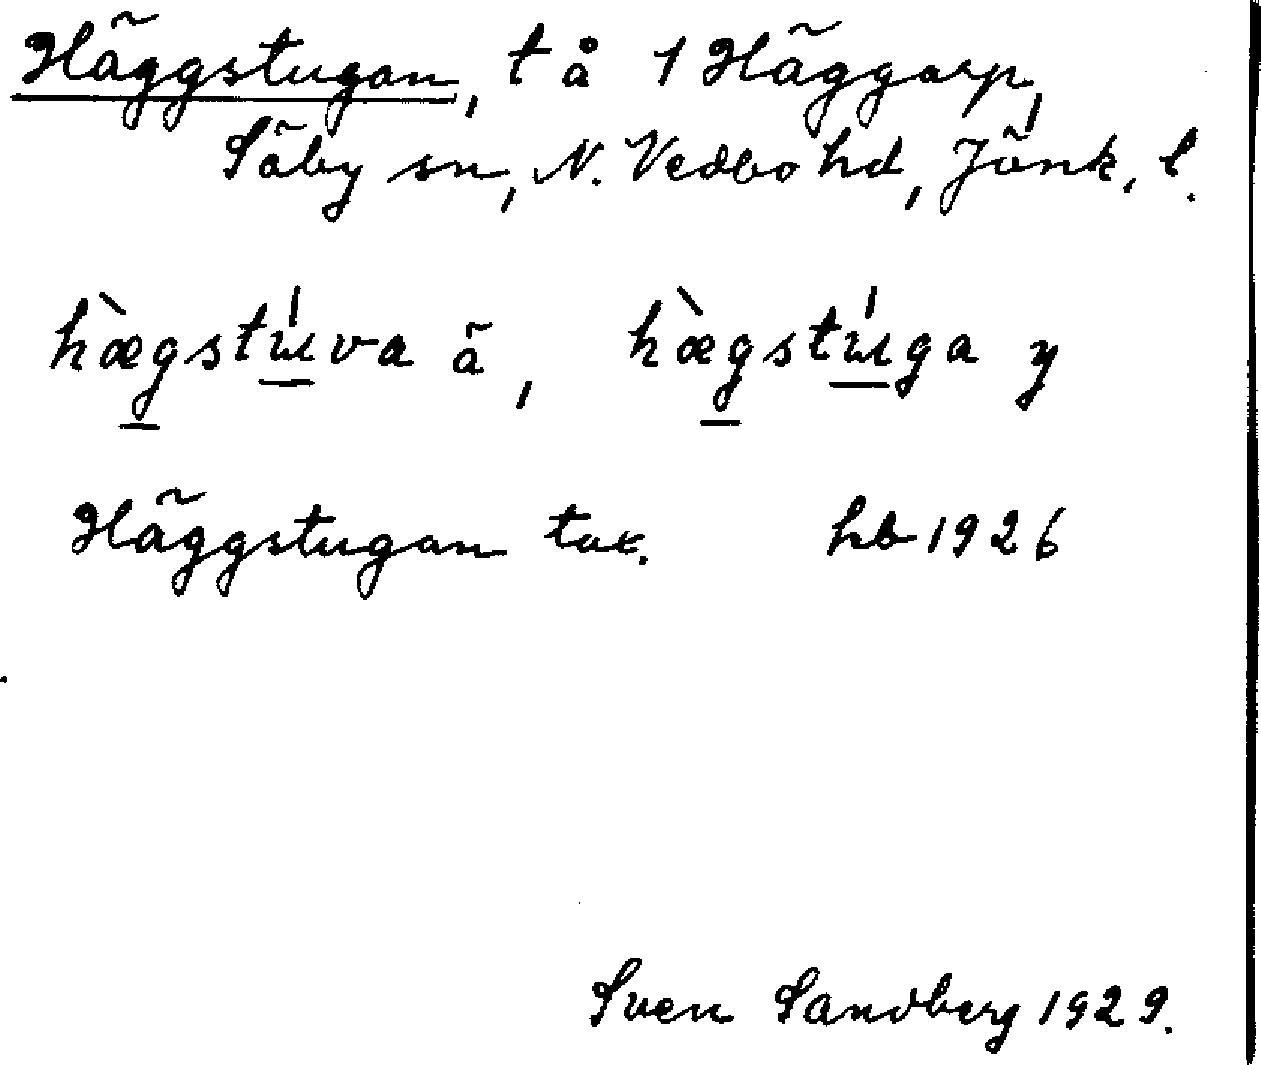 Häggstugan, t å 1 Häggarp,
Säby sn, N. Vedbo hd, Jönk. l.
hægstúva ä, hægstúga y
Häggstugan tax. hb 1926
Sven Sandberg 1929.